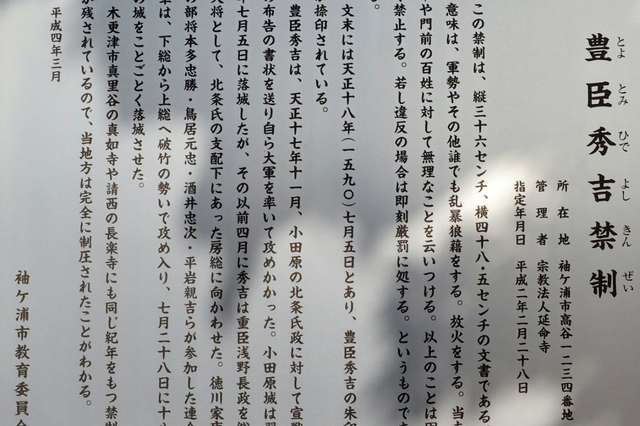 豊臣秀吉禁制
とよ とみ ひで よし きん ぜい
所在地 袖ケ浦市高谷一二三四番地
管理者 宗教法人延命寺
指定年月日 平成二年二月二十八日
この禁制は、縦三十六センチ、横四十八・五センチの文書である
意味は、軍勢やその他誰でも乱暴狼藉をする。放火をする。当
や門前の百姓に対して無理なことを云いつける。以上のことは
禁止する。若し違反の場合は即刻厳罰に処する。というもので
る。
文末には天正十八年(一五九〇)七月五日とあり、豊臣秀吉の朱印
が捺印されている。
豊臣秀吉は、天正十七年十一月、小田原の北条氏政に対して宣戦
布告の書状を送り自ら大軍を率いて攻めかかった。小田原城は翌
年七月五日に落城したが、その以前四月に秀吉は重臣浅野長政を総
大将として、北条氏の支配下にあった房総に向かわせた。徳川家康
の部将本多忠勝・鳥居元忠・酒井忠次・平岩親吉らが参加した連合
は、下総から上総へ破竹の勢いで攻め入り、七月二十八日に十八
の城をことごとく落城させた。
木更津市真里谷の真如寺や請西の長楽寺にも同じ紀年をもつ禁制
が残されているので、当地方は完全に制圧されたことがわかる。
平成四年三月
袖ケ浦市教育委員会